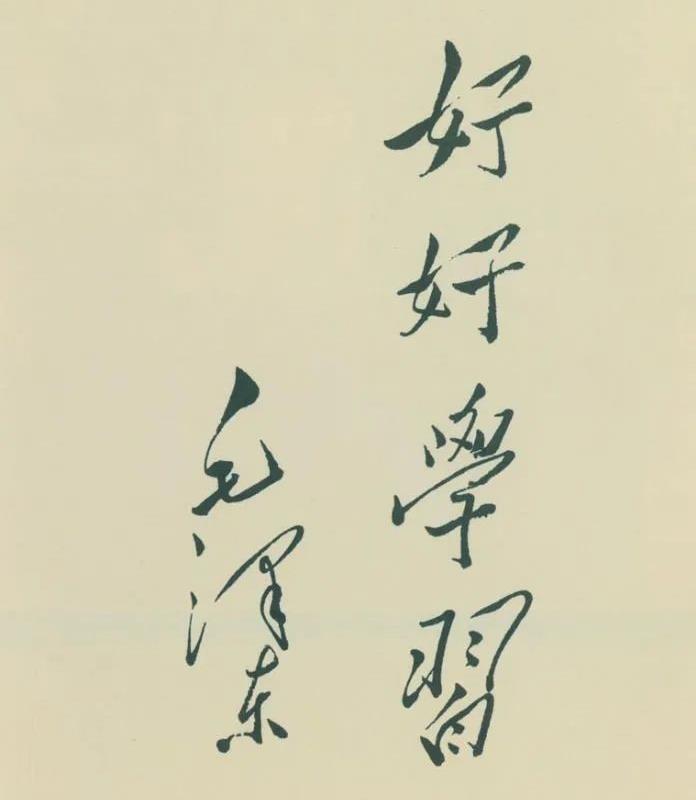 好好學習
毛泽东